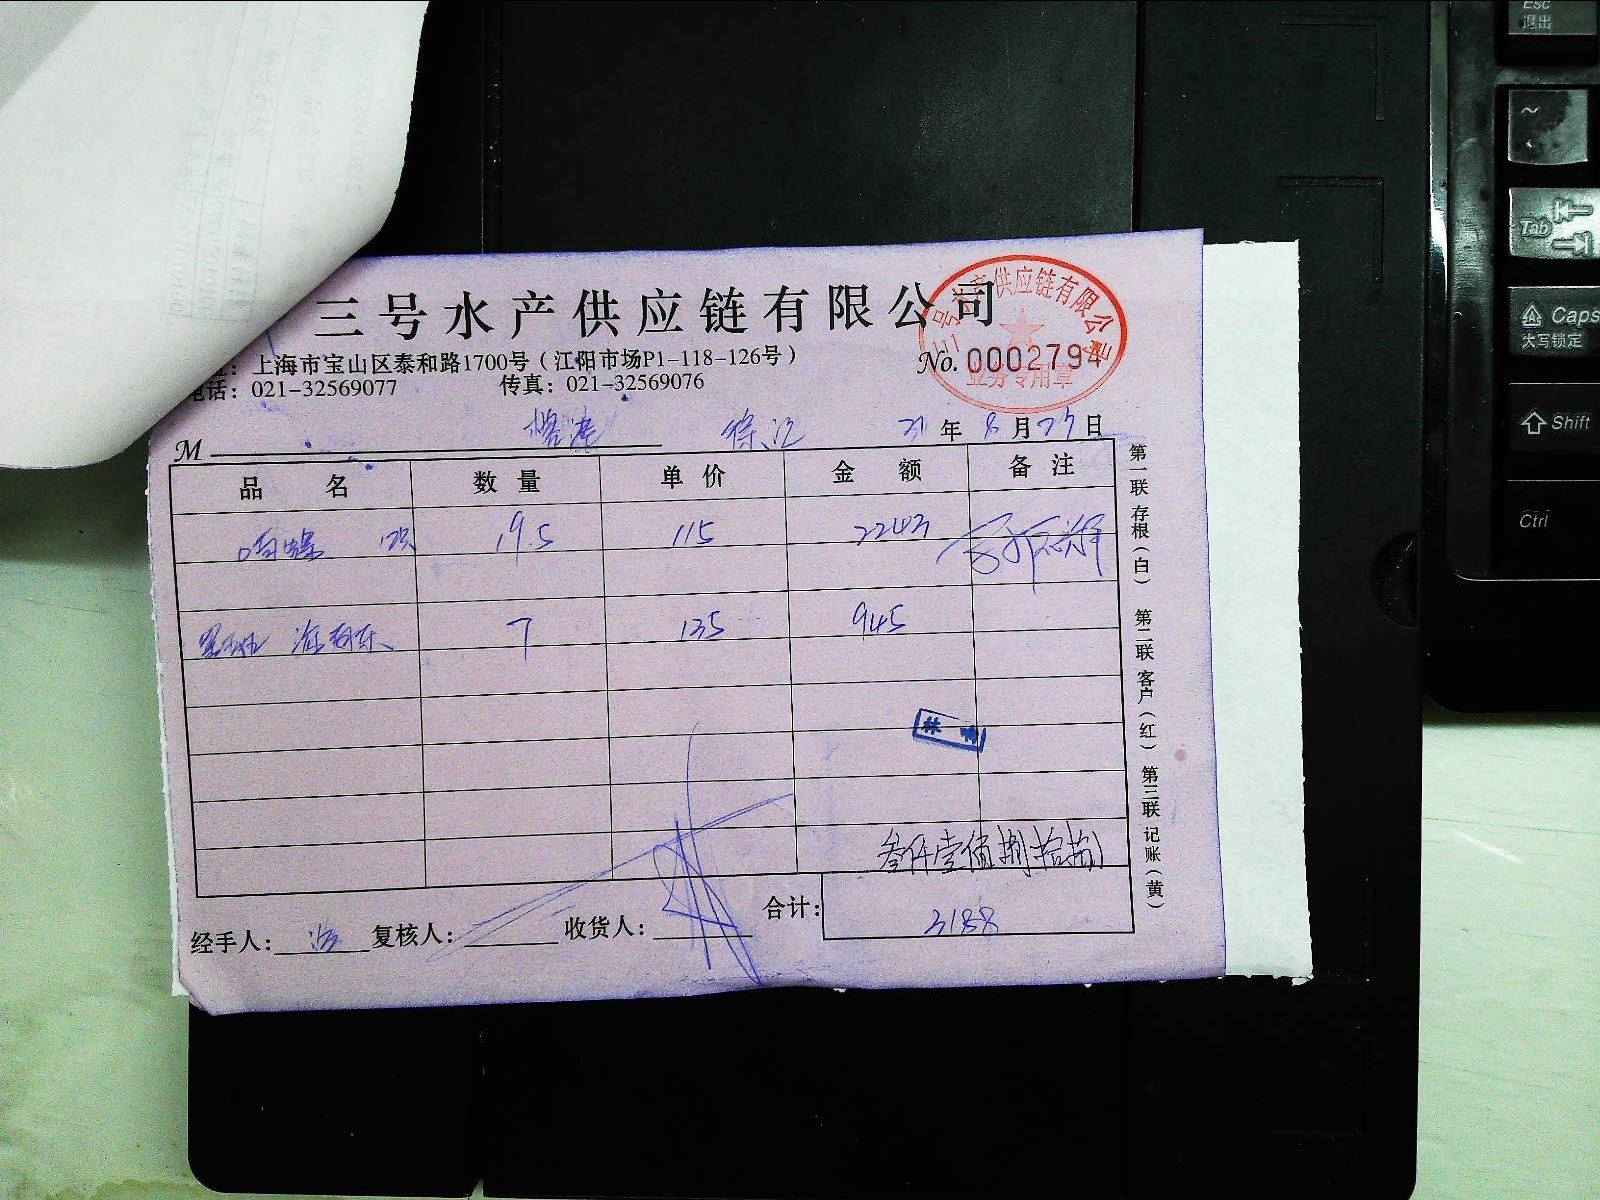 三号水产供应链有限公司
三号水产供应链有限公司
业务专用章
上海市宝山区泰和路1700号（江阳市场P1-118-126号）
No. 0002794
电话：021-32569077 传真：021-32569076
M 徐汇 21年8月27日
品名 数量 单价 金额 备注
响螺 19.5 115 2243
7 135 945
叁仟壹佰捌拾捌
合计： 3188
经手人： 复核人： 收货人：
第一联 存根（白） 第二联 客户（红） 第三联 记账（黄）
Esc
退出
~
Tab
Caps
大写锁定
Shift
Ctrl